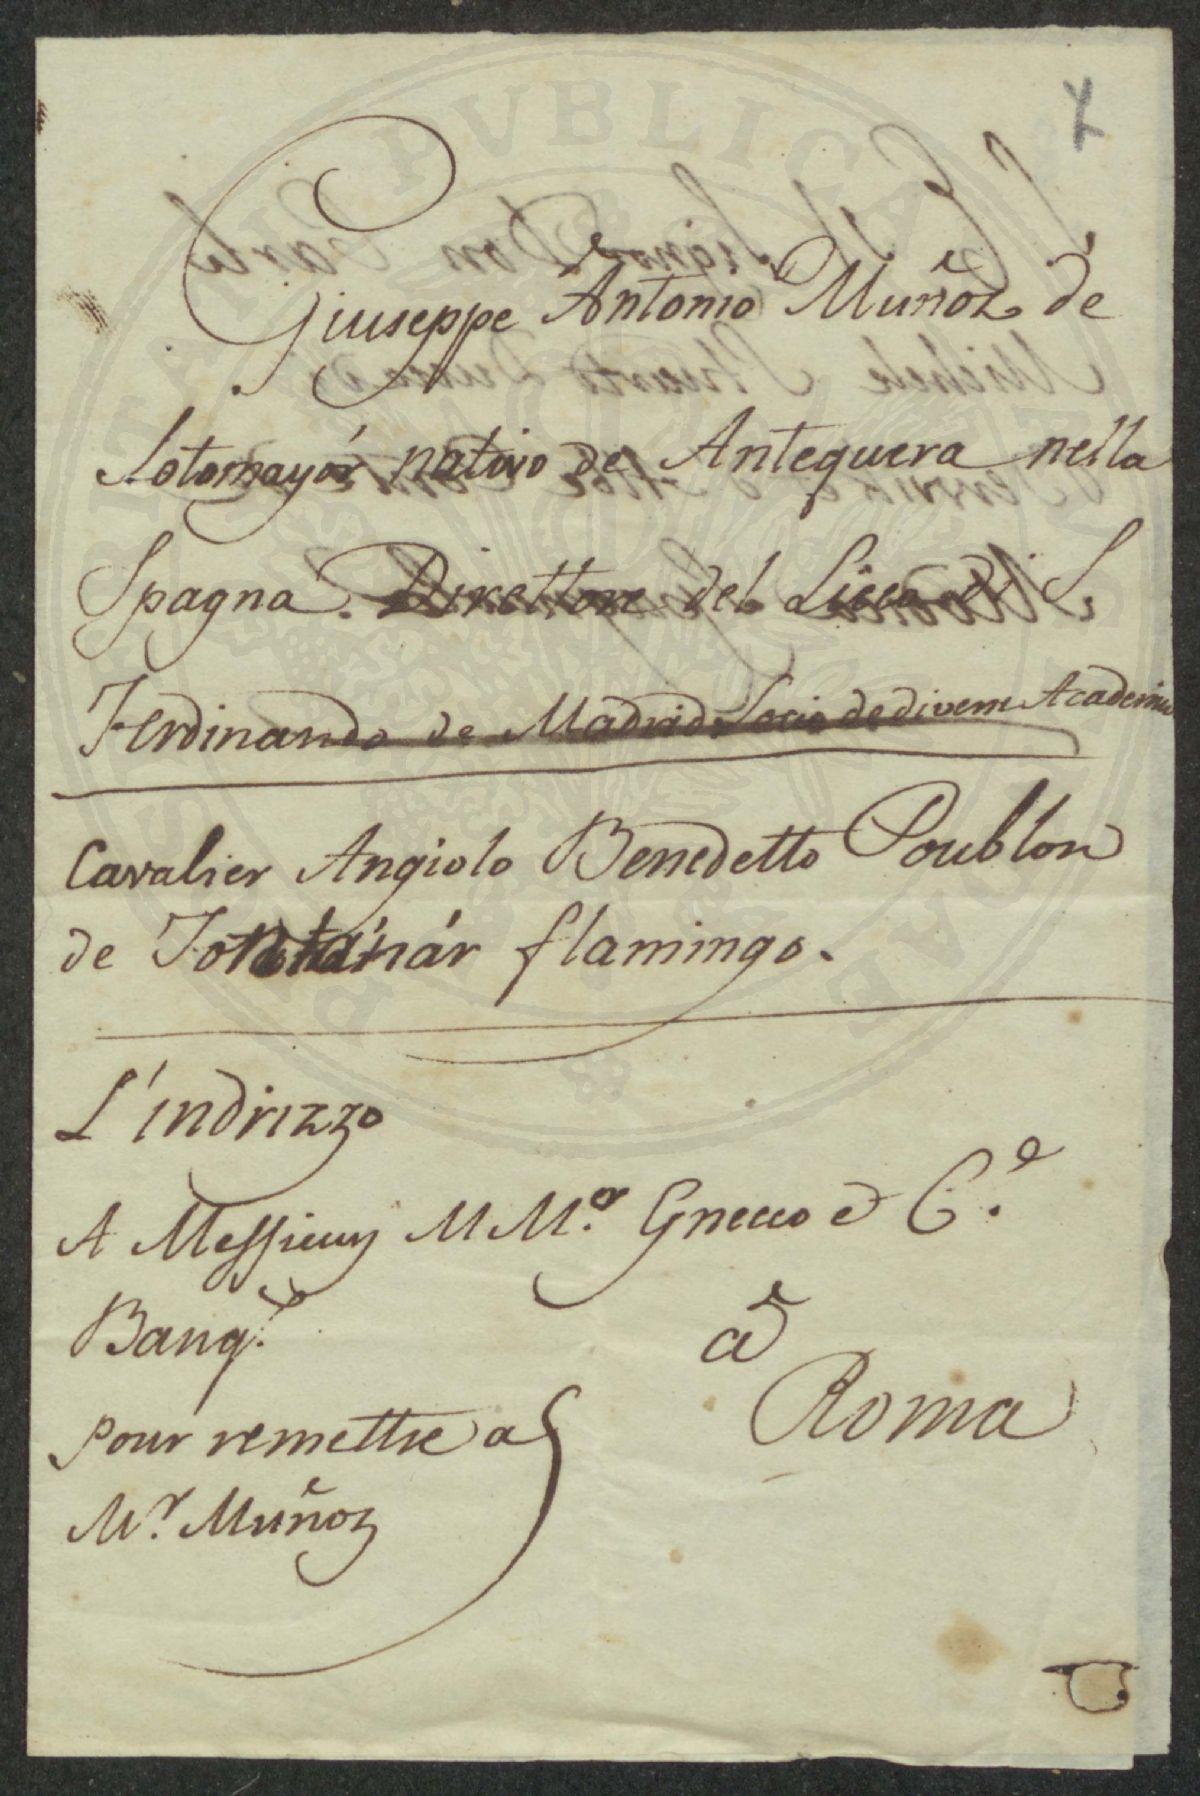 Giuseppe Antonio Muñoz de
Sotomayór nativo de Antequera nella
Spagna. Direttore del Liceo di S.
Ferdinando de Madrid Socio de diverse Academie
Cavalier Angiolo Benedetto Poublon
de flamingo.
L'indrizzo
A Messieurs MM.rs Gnecco e C.e
Banq.
a
Roma
pour remettre a
M.r Muñoz